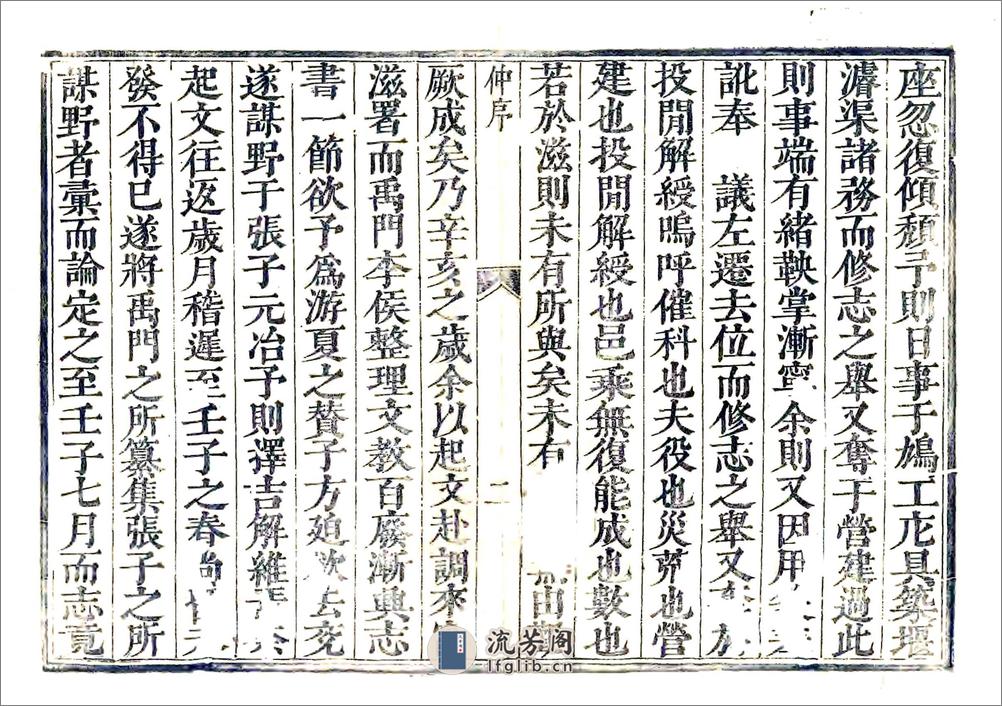 座忽復傾頹予則日事于鳩工庀具築堰
濬渠諸務而修志之舉又奪于營建過此
則事端有緒鞅掌漸寧余則又因用
訛奉 議左遷去位而修志之舉又
投閒解綬嗚呼催科也夫役也災荒也營
建也投閒解綬也邑乘無復能成也數也
若於滋則未有所與矣未有 由
仲序
二
厥成矣乃辛亥之歲余以起文赴調來
滋署而禹門李侯整理文教百廢漸興志
書一節欲予為游夏之贊予方廹欲去兗
遂謀野于張子元冶予則擇吉解維
起文往返歲月稽遲至壬子之春尚
發不得已遂將禹門之所纂集張子之所
謀野者彙而論定之至壬子七月而志竟
流芳阁
lfglib.cn